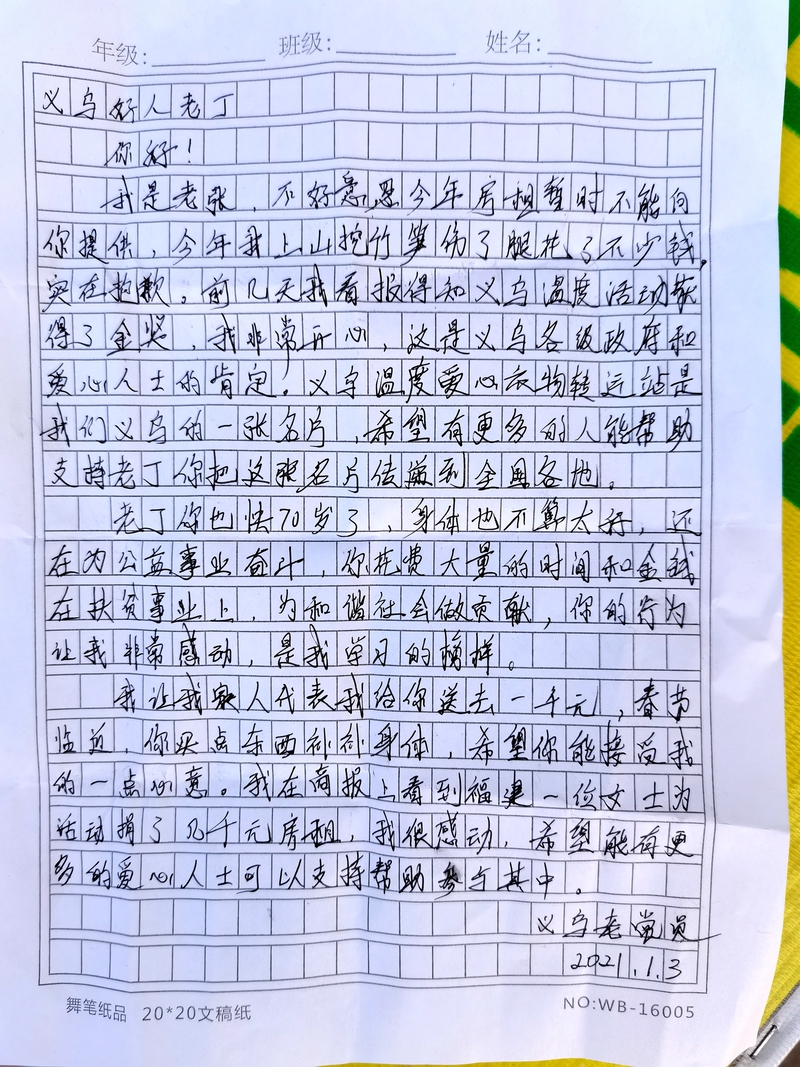 年级: 班级: 姓名:
义乌好人老丁
你好!
我是老张,不好意思今年房租暂时不能向
你提供,今年我上山挖竹笋伤了腿花了不少钱,
实在抱歉。前几天我看报得知义乌温度活动获
得了金奖,我非常开心,这是义乌各级政府和
爱心人士的肯定。义乌温度爱心衣物转运站是
我们义乌的一张名片,希望有更多的人能帮助
支持老丁你把这张名片传遍到全国各地。
老丁你也快70岁了,身体也不算太好,还
在为公益事业奋斗,你花费大量的时间和金钱
在扶贫事业上,为和谐社会做贡献,你的行为
让我非常感动,是我学习的榜样。
我让我家人代表我给你送去一千元,春节
临近,你买点东西补补身体,希望你能接受我
的一点心意。我在商报上看到福建一位女士为
活动捐了几千元房租,我很感动,希望能有更
多的爱心人士可以支持帮助参与其中。
义乌老党员
2021.1.3
舞笔纸品 20*20文稿纸 NO:WB-16005